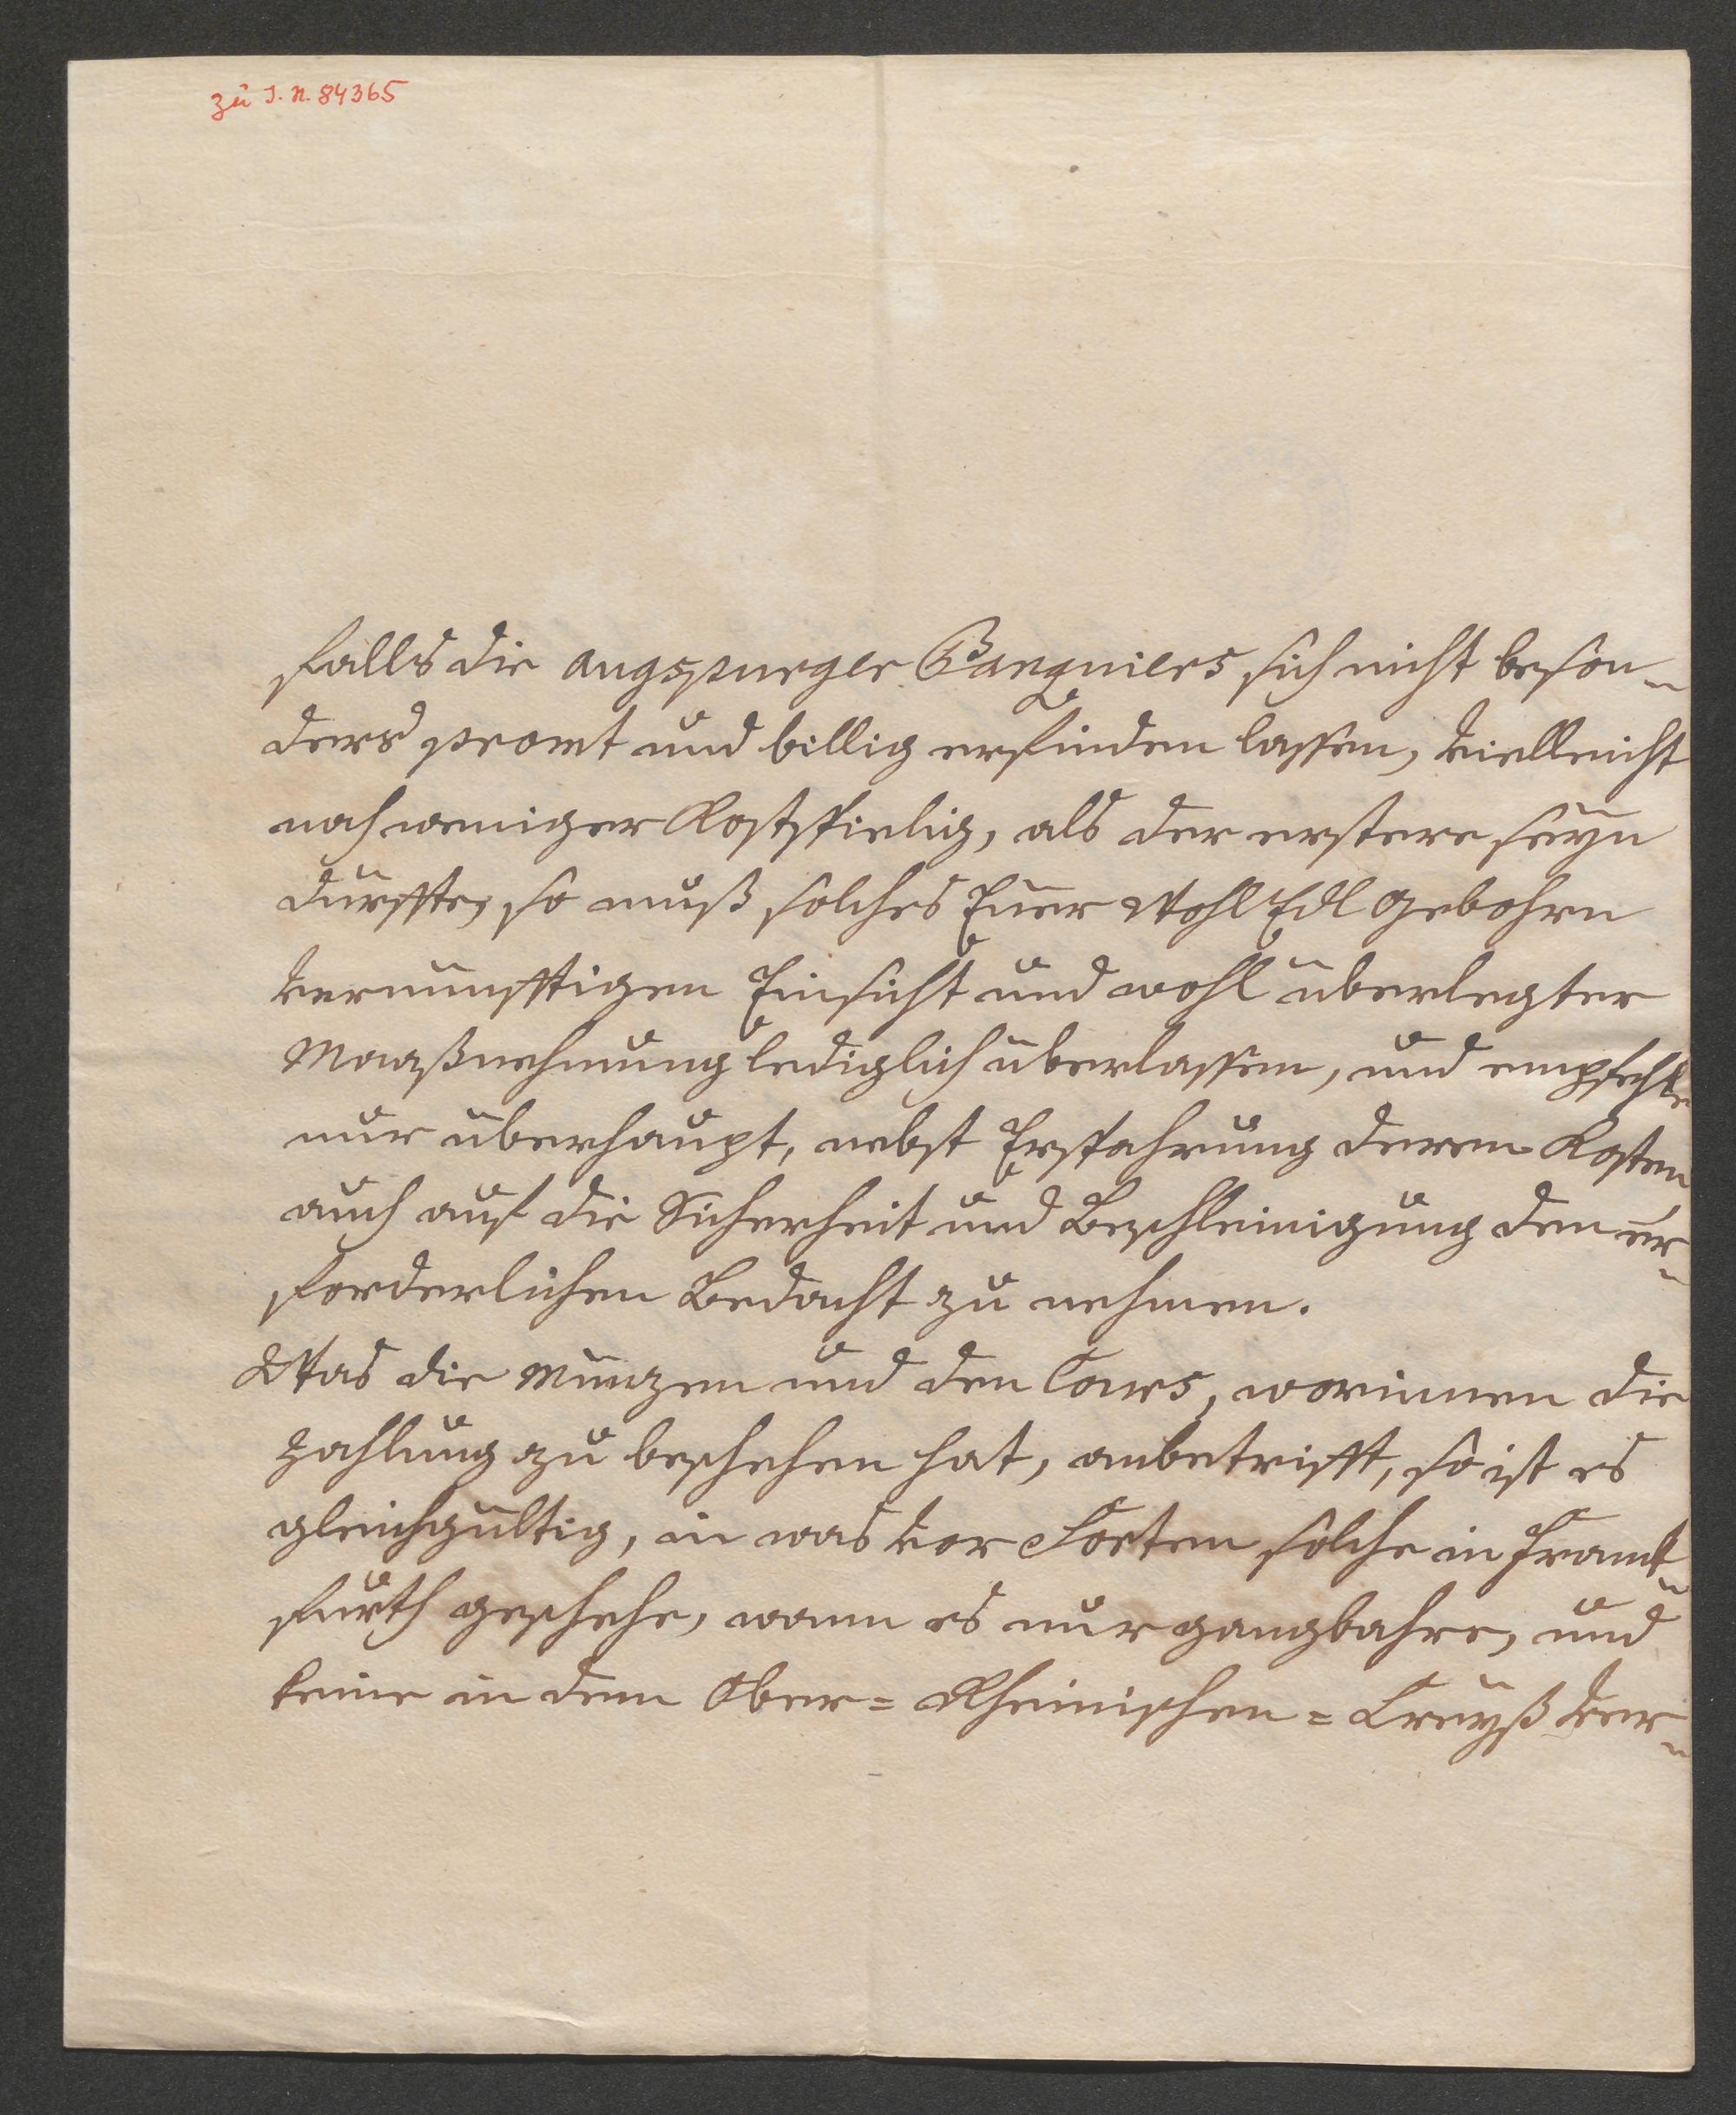 zu I. N. 84365
falls die Augspurger Banquiers sich nicht beson-
ders promt und billig erfinden lassen, vielleicht
noch weniger Kostspielig, als der erstere seyn
dürffte, so muß solches Euer WohlEdlGebohrn
vernünfftigen Einsicht und wohl überlegter
Maaßnehmung lediglich überlassen, und empfehle
nur überhaupt, nebst Erspahrung deren Kosten
auch auf die Sicherheit und Beschleinigung den er-
forderlichen Bedacht zu nehmen.
Was die Münzen und den Cours, worinnen die
Zahlung zu beschehen hat, anbetrifft, so ist es
gleichgültig, in was vor Sorten solche in Franck-
furth geschehe, wann es nur gangbahre, und
keine in dem Ober= Rheinischen= Creyß ver-